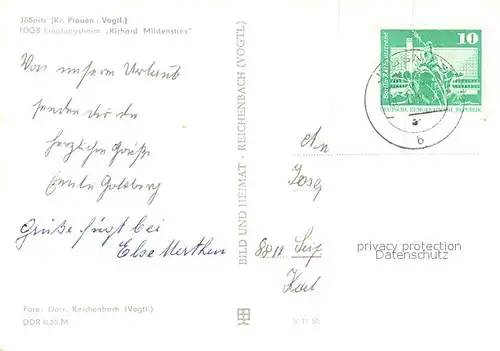 Jößnitz (Kr. Plauen / Vogtl.)
FDGB Erholungsheim „Richard Mildenstrey"
Von unserm Urlaub
senden dir die
herzlichen Grüße
Emilie Golzberg
Grüße fügt bei
Else Merthen
Foto: Darr, Reichenbach (Vogtl.)
DDR 0,25 M
BILD UND HEIMAT · REICHENBACH (VOGTL)
10
Berlin, Rathausstraße
DEUTSCHE DEMOKRATISCHE REPUBLIK
b
An
Josef
privacy protection
DELCAMPE
Karl